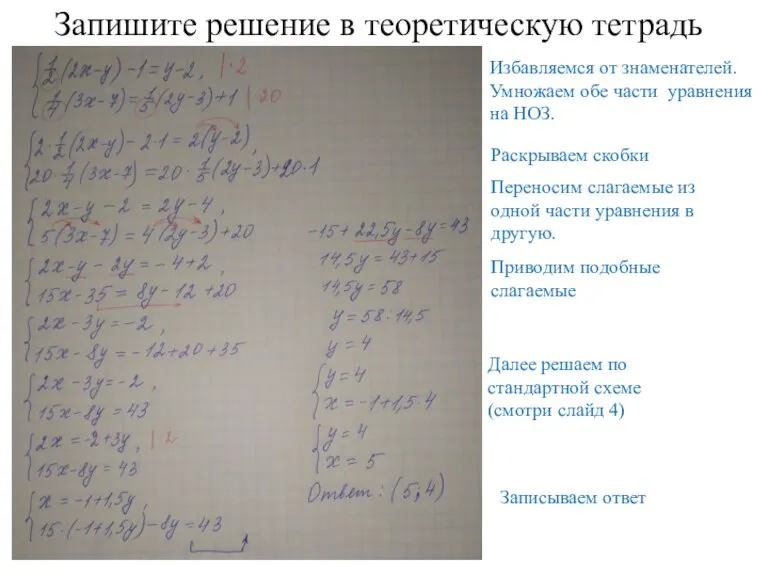 Запишите решение в теоретическую тетрадь
1/2(2x-y)-1=y-2, |·2
1/4(3x-7)=1/5(2y-3)+1 |·20
2·1/2(2x-y)-2·1=2(y-2),
20·1/4(3x-7)=20·1/5(2y-3)+20·1
2x-y-2=2y-4,
5(3x-7)=4(2y-3)+20
2x-y-2y=-4+2,
15x-35=8y-12+20
2x-3y=-2,
15x-8y=-12+20+35
2x-3y=-2,
15x-8y=43
2x=-2+3y, |:2
15x-8y=43
x=-1+1,5y,
15·(-1+1,5y)-8y=43
-15+22,5y-8y=43
14,5y=43+15
14,5y=58
y=58:14,5
y=4
y=4
x=-1+1,5·4
y=4
x=5
Ответ: (5;4)
Избавляемся от знаменателей.
Умножаем обе части уравнения
на НОЗ.
Раскрываем скобки
Переносим слагаемые из
одной части уравнения в
другую.
Приводим подобные
слагаемые
Далее решаем по
стандартной схеме
(смотри слайд 4)
Записываем ответ